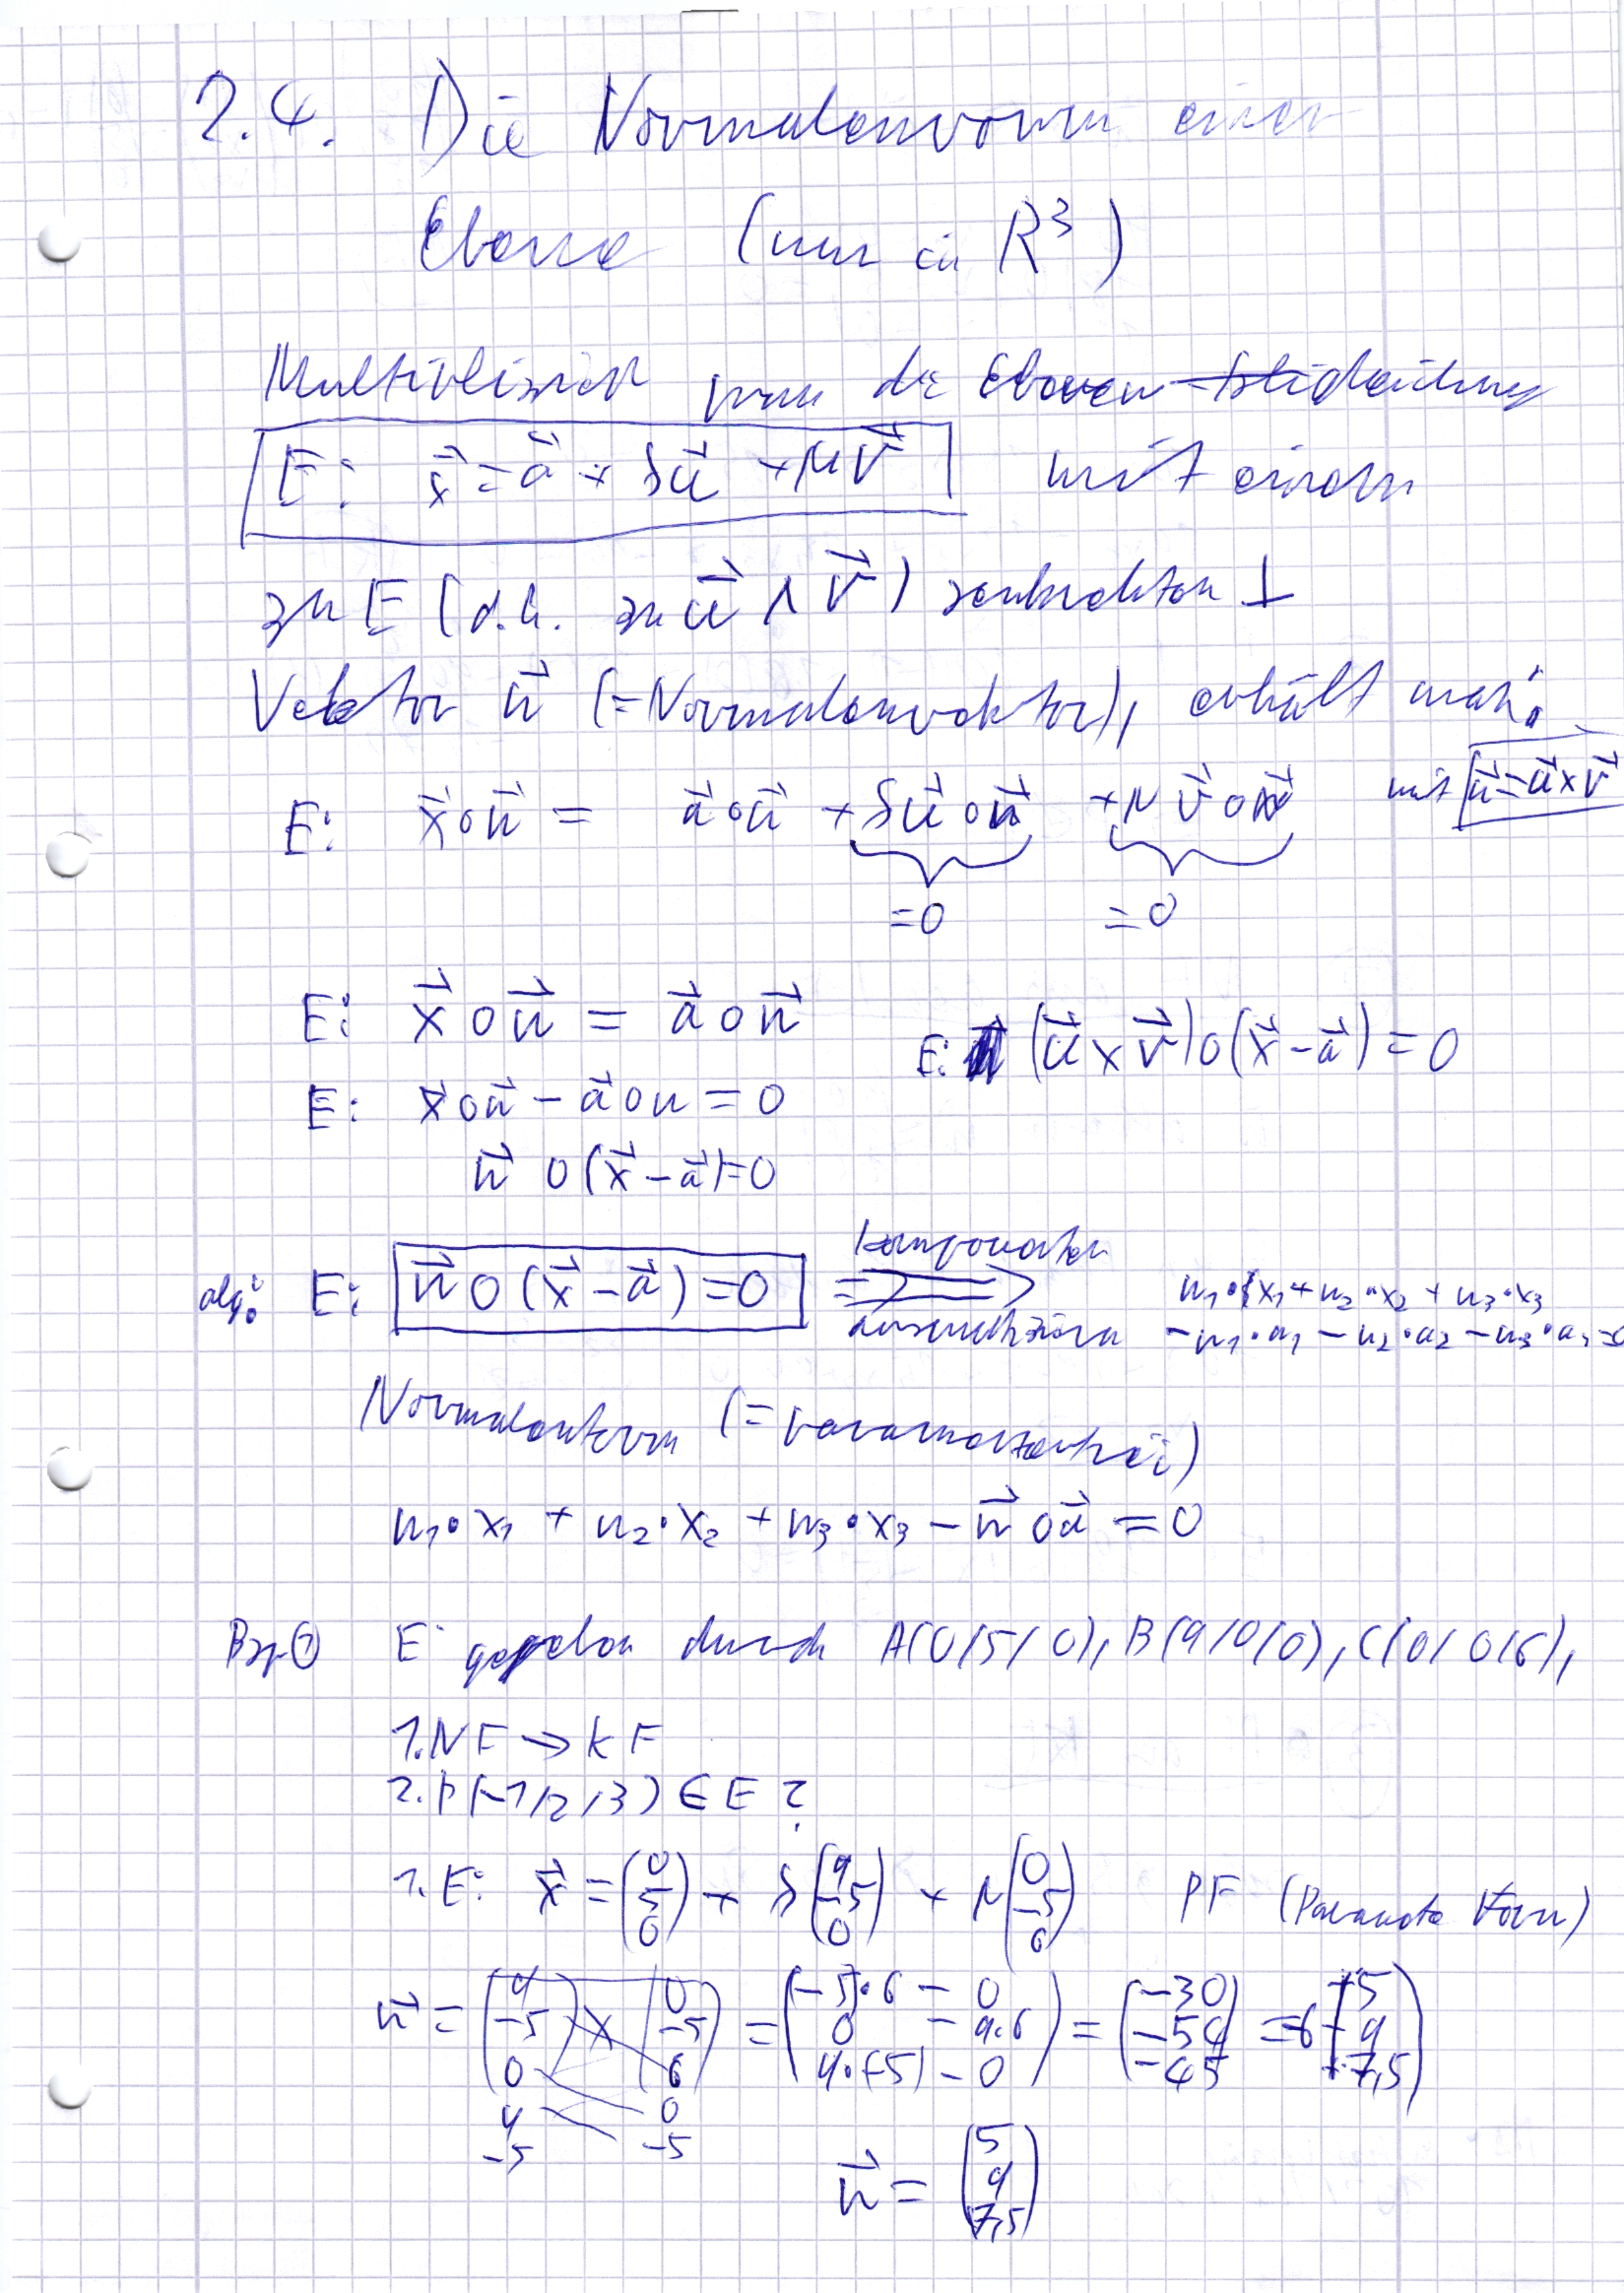 2.4. Die Normalenvorm einer
Ebene (nur in R³)
Multipliziert man die Ebenengleichung
E: x⃗ = a⃗ + λu⃗ + μv⃗ mit einem
zu E (d.h. zu u⃗ ∧ v⃗) senkrechten ⊥
Vektor n⃗ (=Normalenvektor), erhält man:
E: x⃗ ∘ n⃗ = a⃗ ∘ u⃗ + λu⃗ ∘ n⃗ + μ v⃗ ∘ n⃗ mit n⃗ = u⃗ × v⃗
=0 =0
E: x⃗ ∘ n⃗ = a⃗ ∘ n⃗
E: (u⃗ × v⃗) ∘ (x⃗ - a⃗) = 0
E: x⃗ ∘ n⃗ - a⃗ ∘ n = 0
n⃗ ∘ (x⃗ - a⃗) = 0
alg.: E: n⃗ ∘ (x⃗ - a⃗) = 0 ⟹ komponenten
ausmultiplizieren
n₁·x₁ + n₂·x₂ + n₃·x₃
- n₁·a₁ - n₂·a₂ - n₃·a₃ = 0
Normalenform (= parameterfrei)
n₁·x₁ + n₂·x₂ + n₃·x₃ - n⃗ ∘ a⃗ = 0
Bsp① E gegeben durch A(0/5/0), B(9/0/0), C(0/0/6),
1. NF → KF
2. P(-1/2/3) ∈ E ?
1. E: x⃗ = (0 5 0) + λ(9 -5 0) + μ(0 -5 6) PF (Parameter Form)
n⃗ = (9 -5 0) × (0 -5 6) = ((-5)·6 - 0 0 - 9·6 9·(-5) - 0) = (-30 -54 -45) = -6 (+5 9 +7,5)
9 0
-5 -5
n⃗ = (5 9 7,5)